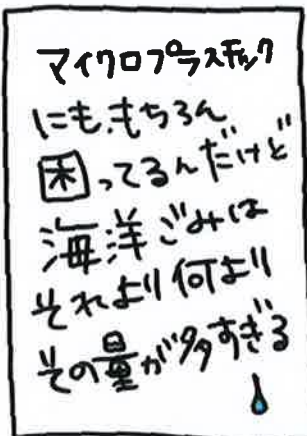 マイクロプラスチック
にも、もちろん
困ってるんだけど
海洋ごみは
それより何より
その量が多すぎる